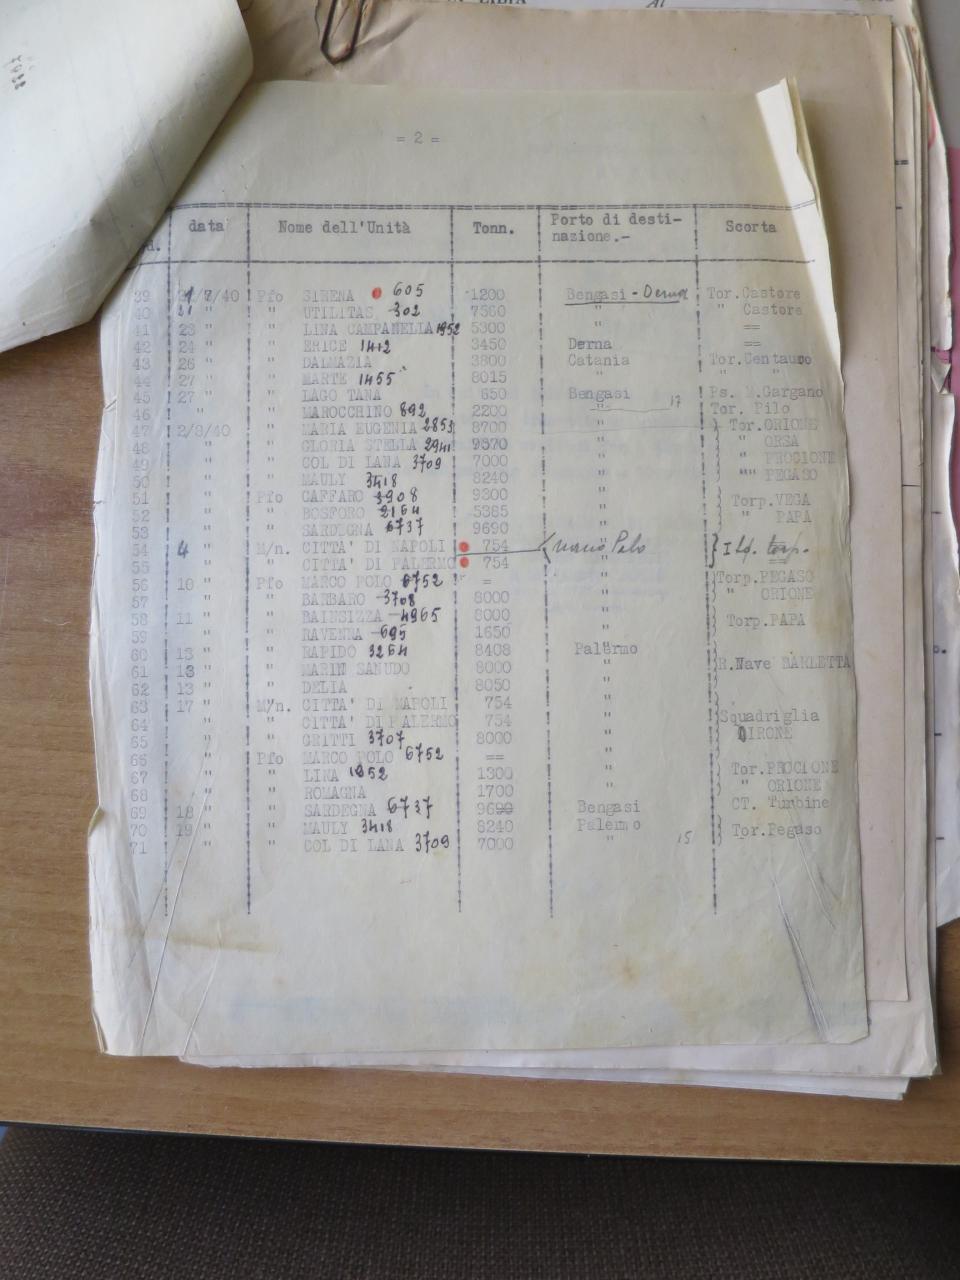 = 2 =
data Nome dell'Unità Tonn. Porto di desti- Scorta
d. nazione.-
39 /7/40 Pfo SIRENA 605 1200 Bengasi - Derna Tor.Castore
40 21 " " UTILITAS 302 7560 " " Castore
41 23 " " LINA CAMPANELLA 1952 5300 " ==
42 24 " " ERICE 1412 3450 Derna ==
43 26 " " DALMAZIA 3800 Catania Tor.Centauro
44 27 " " MARTE 1455 8015 " " "
45 27 " LAGO TANA 650 Bengasi 17 Ps. M.Gargano
46 " " MAROCCHINO 892 2200 " Tor. Pilo
47 2/8/40 " MARIA EUGENIA 2853 8700 " Tor.ORIONE
48 " " GLORIA STELLA 2941 9370 " " ORSA
49 " " COL DI LANA 3709 7000 " " PROCIONE
50 " " MAULY 3418 8240 " "" PEGASO
51 " Pfo CAFFARO 3908 9300 " Torp.VEGA
52 " " BOSFORO 2164 5385 " " PAPA
53 " " SARDEGNA 6737 9690 "
54 4 " M/n. CITTA' DI NAPOLI 754
55 " " CITTA' DI PALERMO 754 " ==
56 10 " Pfo MARCO POLO 6752 = " Torp.PEGASO
57 " " BARBARO 3708 8000 " " ORIONE
58 11 " " BAINSIZZA 4965 8000 " Torp.PAPA
59 " " RAVENNA 695 1650 "
60 13 " " RAPIDO 3264 8408 Palermo
61 13 " " MARIN SANUDO 8000 " R.Nave BARLETTA
62 13 " " DELIA 8050 "
63 17 " M/n. CITTA' DI NAPOLI 754 "
64 " " CITTA' DI PALERMO 754 " Squadriglia
65 " " GRITTI 3707 8000 " AIRONE
66 " Pfo MARCO POLO 6752 == "
67 " " LINA 1952 1300 " Tor.PROCIONE
68 " " ROMAGNA 1700 " " ORIONE
69 18 " " SARDEGNA 6737 9690 Bengasi CT. Turbine
70 19 " " MAULY 3418 8240 Palermo Tor.Pegaso
71 " " COL DI LANA 3709 7000 " 15